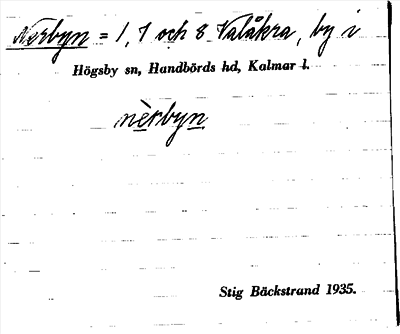 Nerbyn = 1, 7 och 8 Valåkra, by i
Högsby sn, Handbörds hd, Kalmar l.
nèrbyn
Stig Bäckstrand 1935.